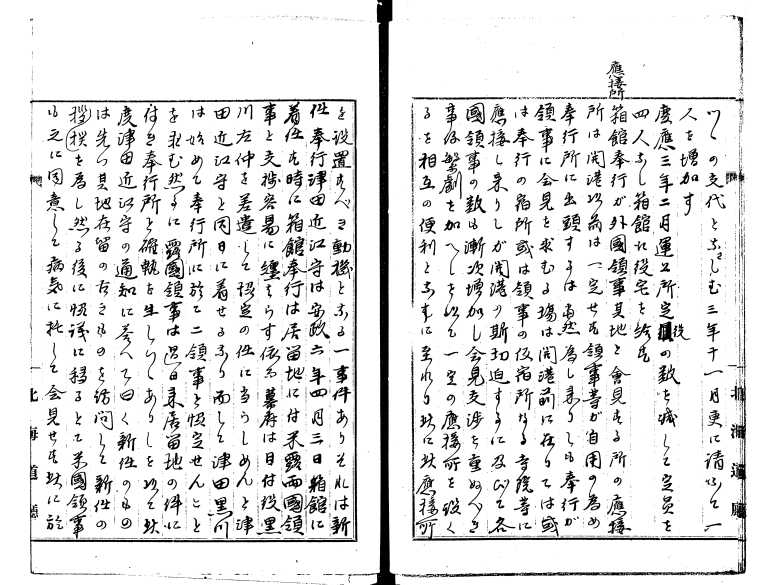 應接所
つゝの交代となさしむ三年十一月更に請ひて一
人を増加す
慶應三年二月運上所定役の数を減して定員を
四人とし箱館に役宅を給す
箱館奉行が外國領事其地と會見する所の應接
所は開港以前は一定せす領事等が自用の為め
奉行所に出頭するは当然為し来りしも奉行が
領事に会見を求むる場は開港前に在りては或
は奉行の宿所或は領事の仮宿所なる寺院等に
應接し来りしが開港の期切迫するに及びて各
國領事の数も漸次増加し会見交渉を重ぬへき
事は繁劇を加へしを以て一定の應接所を設く
るを相互の便利となすに至れり玆に此應接所
を設置すへき動機となる一事件ありそれは新
任奉行津田近江守は安政六年四月三日箱館に
着任す時に箱館奉行は居留地に付米露両國領
事と交渉容易に纏まらす依て幕府は目付役黒
川左仲を差遣して協定の任に当らしめんと津
田近江守と同日に着せるなり而して津田黒川
は始めて奉行所に於て二領事と協定せんこと
を求む然るに露國領事は過日来居留地の件に
付き奉行所と確執を生しつゝありしを以て此
度津田近江守の通知に答へて曰く新任のもの
は先つ其地在留の古きものを訪問して新任の
挨拶を為し然る後に協議に移るとて米國領事
も之に同意して病気に托して会見せす玆に於
北海道廳
北海道廳